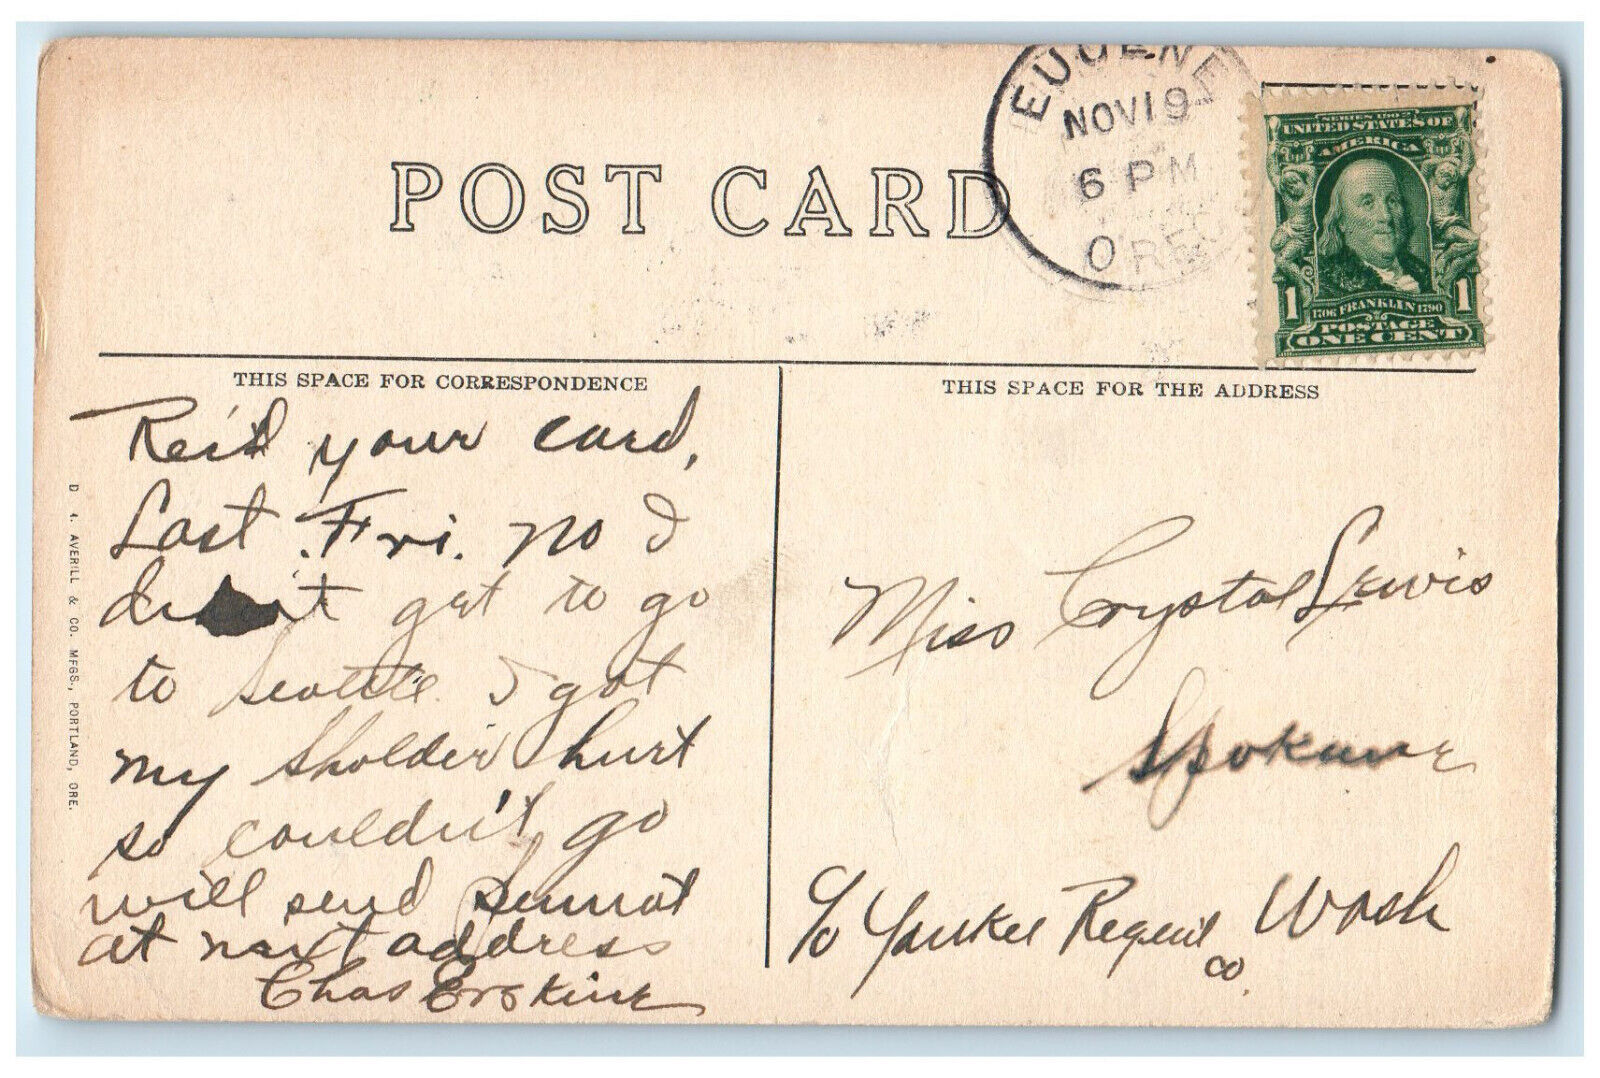 EUGENE
NOV 19
6 PM
ORE.
SERIES 1902
UNITED STATES OF
AMERICA
1 1706 FRANKLIN 1790 1
POSTAGE
ONE CENT
POST CARD
THIS SPACE FOR CORRESPONDENCE
THIS SPACE FOR THE ADDRESS
Rec'd your card,
Last Fri. no I
didn't get to go
to Seattle I got
my sholder hurt
so couldn't go
will send
at next address
Chas Erskine
Miss Crystal Lewis
Spokane
c/o Yankee Regent Wash
co.
AVERILL & CO. MFGS., PORTLAND, ORE.